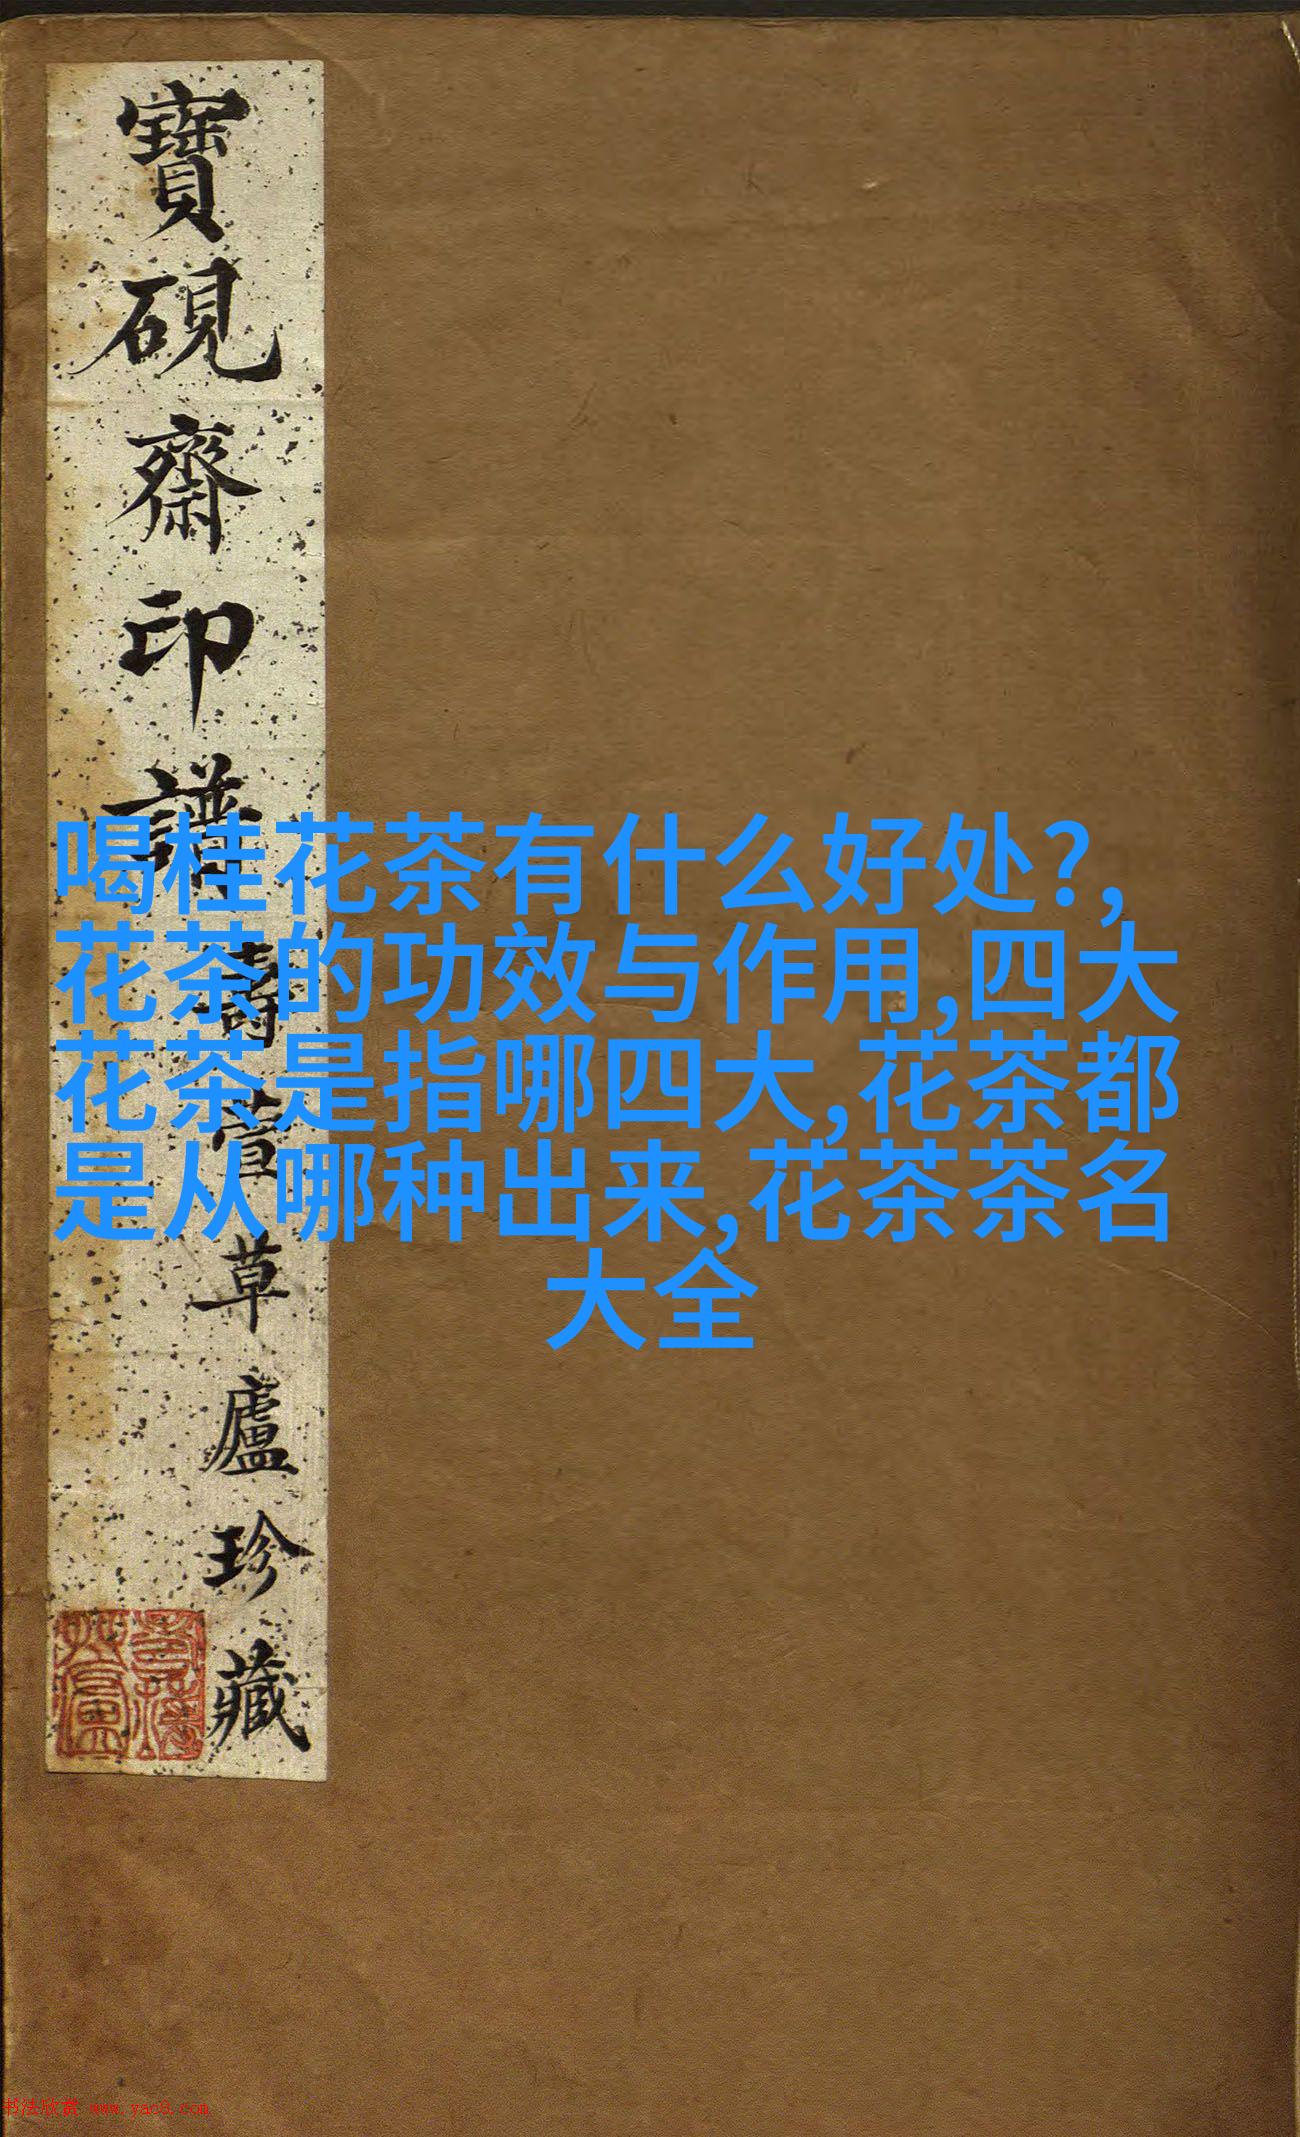 寶硯齋印譜
壽萱草廬珍藏
喝桂花茶有什么好处?,
花茶的功效与作用,四大
花茶是指哪四大,花茶都
是从哪种出来,花茶茶名
大全
书法欣赏 www.yac8.com